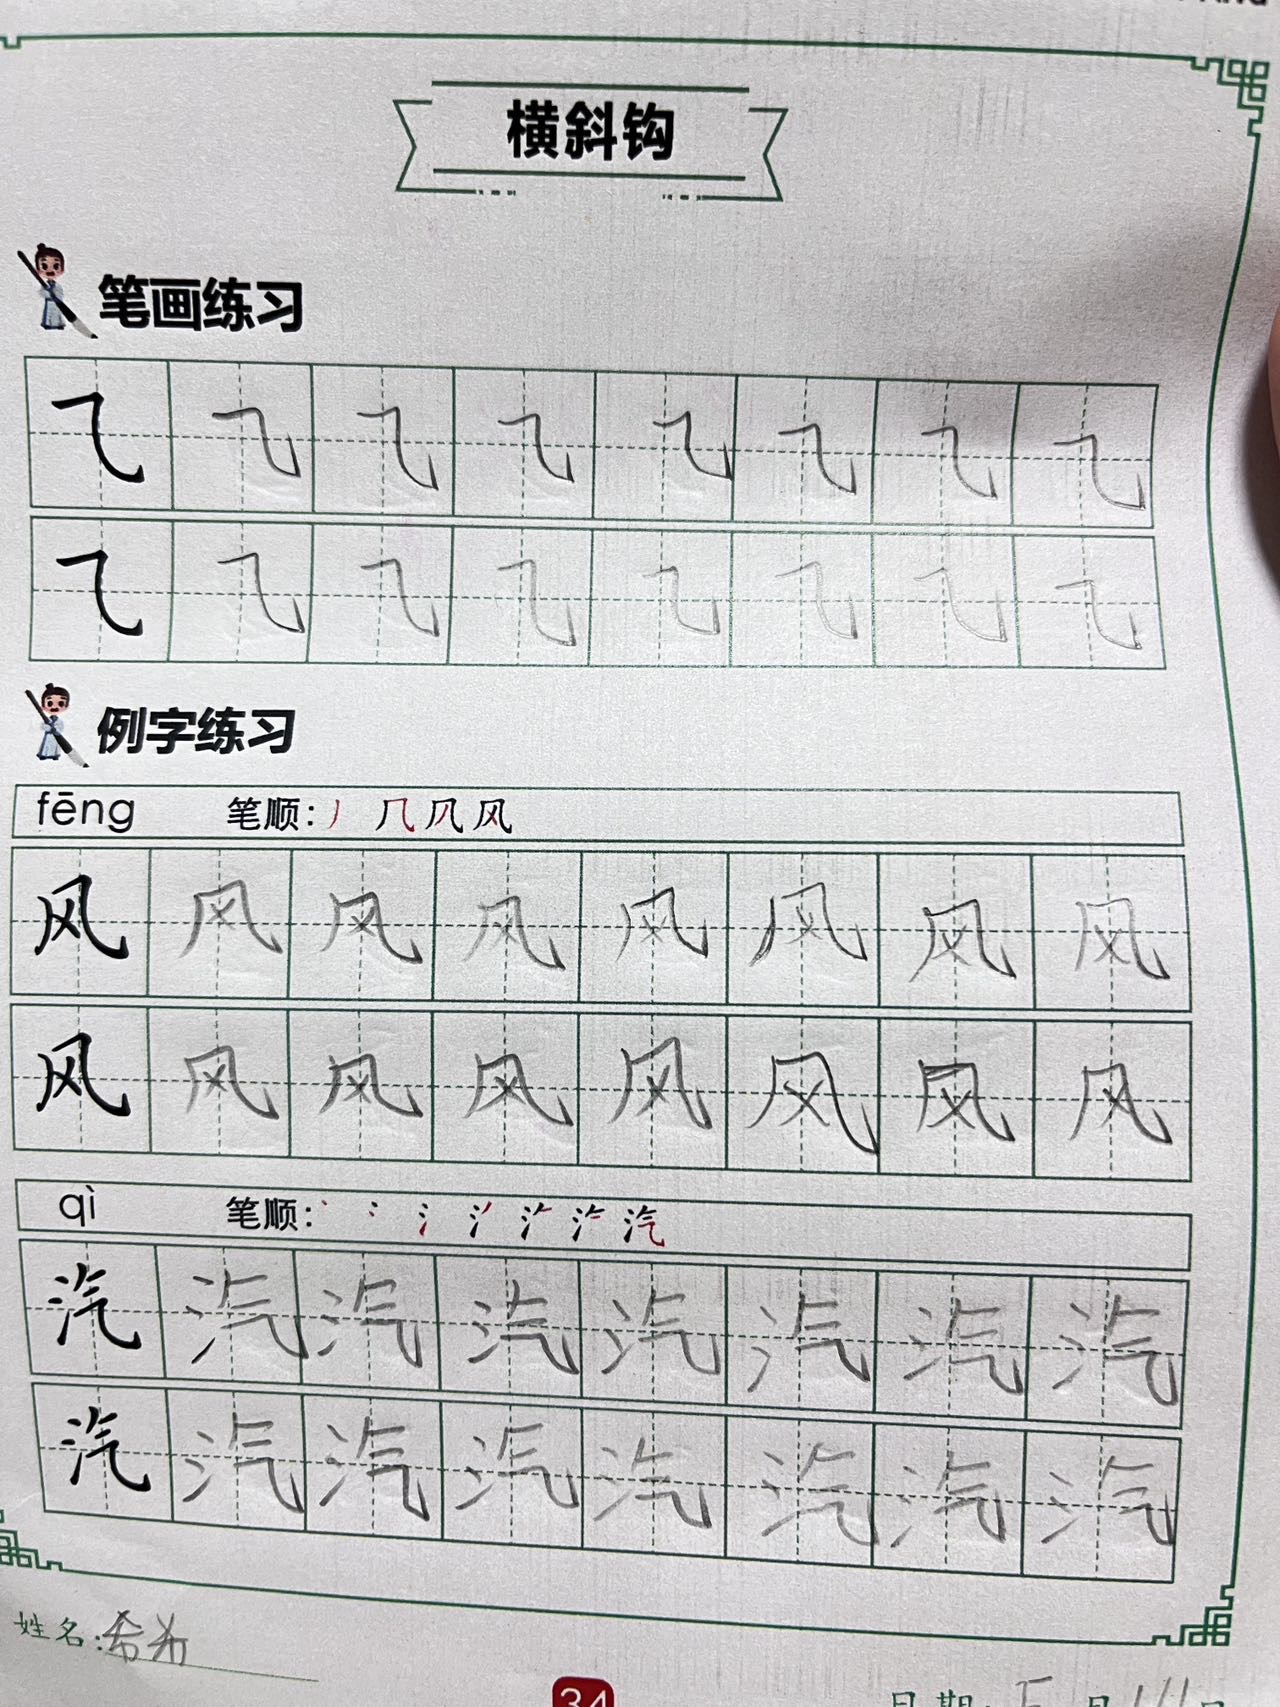 横斜钩
笔画练习
⺄ ⺄ ⺄ ⺄ ⺄ ⺄ ⺄ ⺄
⺄ ⺄ ⺄ ⺄ ⺄ ⺄ ⺄ ⺄
例字练习
fēng 笔顺: 丿 ⺇ 风
风 风 风 风 风 风 风 风
风 风 风 风 风 风 风 风
qì 笔顺: 丶 冫 氵 汽
汽 汽 汽 汽 汽 汽 汽 汽
汽 汽 汽 汽 汽 汽 汽 汽
姓名:希希
34
日期: 月 日